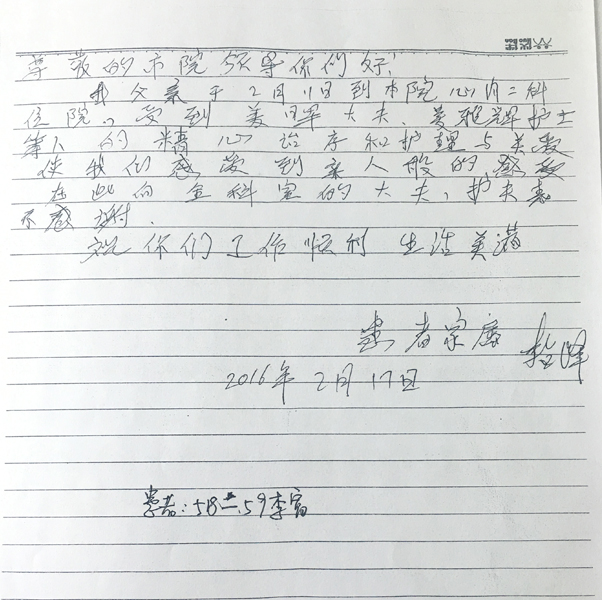 尊敬的市院领导你们好!
我父亲于2月1日到本院心内二科
住院,受到姜军大夫、姜雅辉护士
等人的精心治疗和护理与关爱
使我们感受到亲人般的感受
在此向全科室的大夫、护士表
示感谢.
祝你们工作顺利 生活美满
患者家属
2016年2月17日
患者:58 59李富